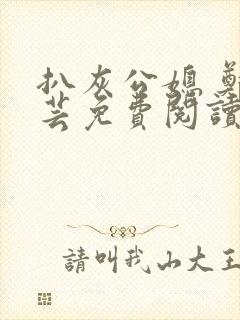 扒灰公媳 鄭
芸免費閱讀
請叫我山大王